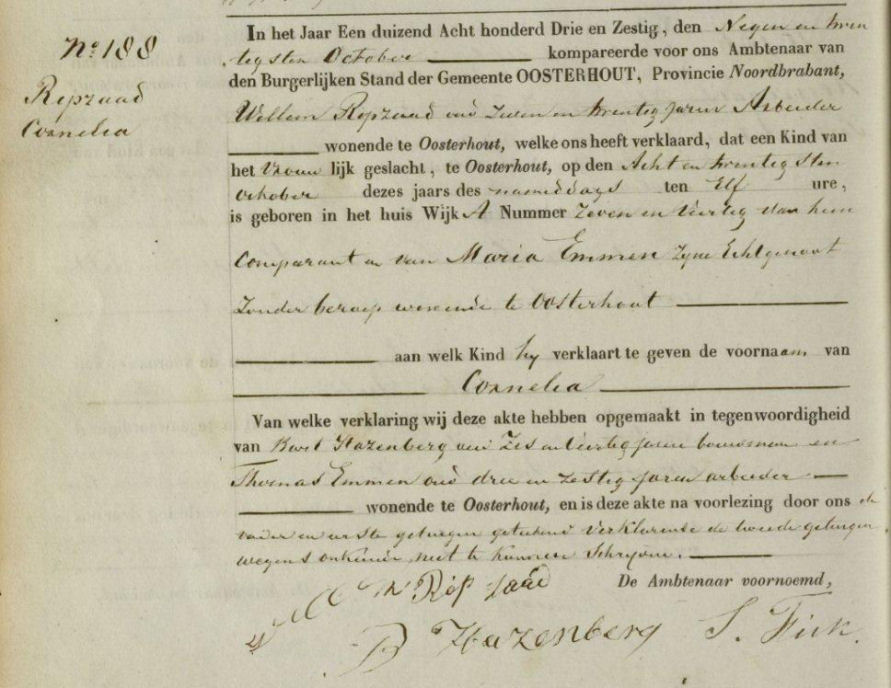 In het Jaar Een duizend Acht honderd Drie en Zestig, den Negen en twin
tigsten October kompareerde voor ons Ambtenaar van
den Burgerlijken Stand der Gemeente OOSTERHOUT, Provincie Noordbrabant,
No 188
Repzaad
Cornelia
Willem Repzaad oud Zeven en twintig jaren Arbeider
wonende te Oosterhout, welke ons heeft verklaard, dat een Kind van
het Vrouwlijk geslacht, te Oosterhout, op den Acht en twintigsten
October dezes jaars des namiddags ten Elf ure,
is geboren in het huis Wijk A Nummer Zeven en Veertig van hem
Comparant en van Maria Emmen zijne Echtgenoot
Zonder beroep wonende te Oosterhout
aan welk Kind hij verklaart te geven de voornaam van
Cornelia
Van welke verklaring wij deze akte hebben opgemaakt in tegenwoordigheid
van Hazenberg oud Zes en Veertig jaren bouwman en
Thomas Emmen oud drie en zestig jaren arbeider
wonende te Oosterhout, en is deze akte na voorlezing door ons de
vader en eerste getuigen geteekend verklarende de tweede getuigen
wegens onkunde niet te kunnen Schrijven.
De Ambtenaar voornoemd,
W Rep zaad
Hazenberg